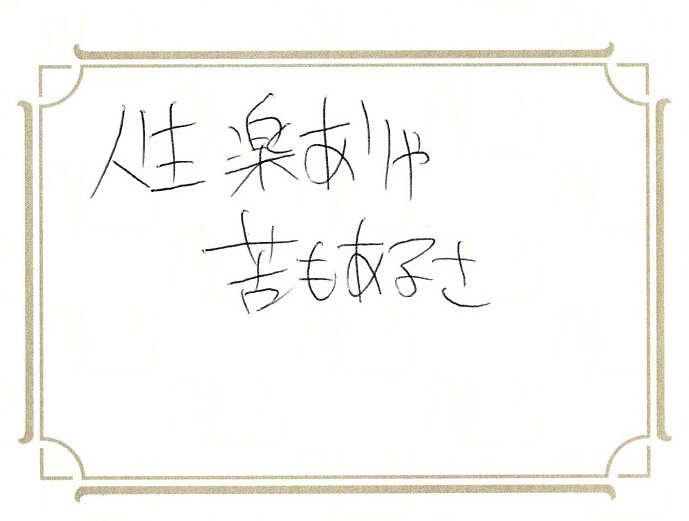 人生楽ありゃ
苦もあるさ